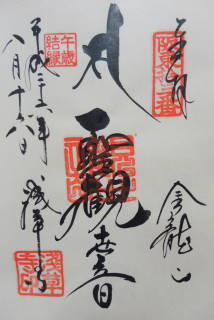 奉拝
坂東十三番
金龍山
聖観世音
午歳
結縁
平成二十六年
八月十六日
浅草寺
浅草
寺印